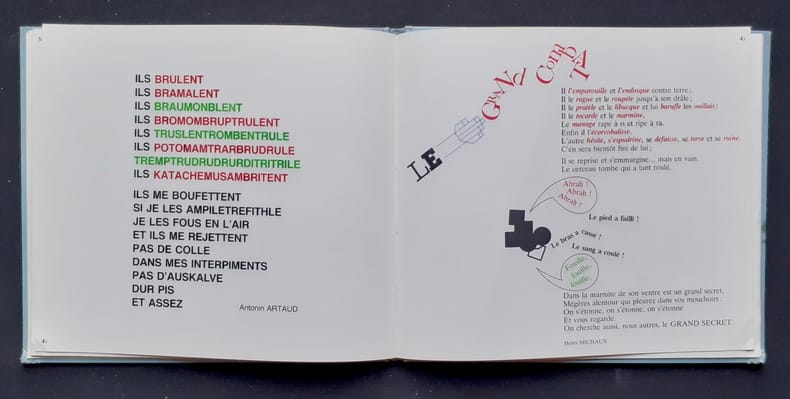 ILS BRULENT
ILS BRAMALENT
ILS BRAUMONBLENT
ILS BROMOMBRUPTRULENT
ILS TRUSLENTROMBENTRULE
ILS POTOMAMTRARBRUDRULE
TREMPTRUDRUDRURDITRITRILE
ILS KATACHEMUSAMBRITENT
ILS ME BOUFETTENT
SI JE LES AMPILETREFITHLE
JE LES FOUS EN L'AIR
ET ILS ME REJETTENT
PAS DE COLLE
DANS MES INTERPIMENTS
PAS D'AUSKALVE
DUR PIS
ET ASSEZ
Antonin ARTAUD
LE GRAND COMBAT
Il l'emparouille et l'endosque contre terre;
Il le rague et le roupète jusqu'à son drâle;
Il le pratèle et le libucque et lui barufle les ouillais;
Il le tocarde et le marmine,
Le manage rape à ri et ripe à ra.
Enfin il l'écorcobalisse.
L'autre hésite, s'espudrine, se défaisse, se torse et se ruine.
C'en sera bientôt fini de lui;
Il se reprise et s'emmargine... mais en vain.
Le cerceau tombe qui a tant roulé.
Abrah !
Abrah !
Abrah !
Le pied a failli !
Le bras a cassé !
Le sang a coulé !
Fouille,
fouille,
fouille,
Dans la marmite de son ventre est un grand secret,
Mégères alentour qui pleurez dans vos mouchoirs:
On s'étonne, on s'étonne, on s'étonne
Et vous regarde.
On cherche aussi, nous autres, le GRAND SECRET.
Henri MICHAUX